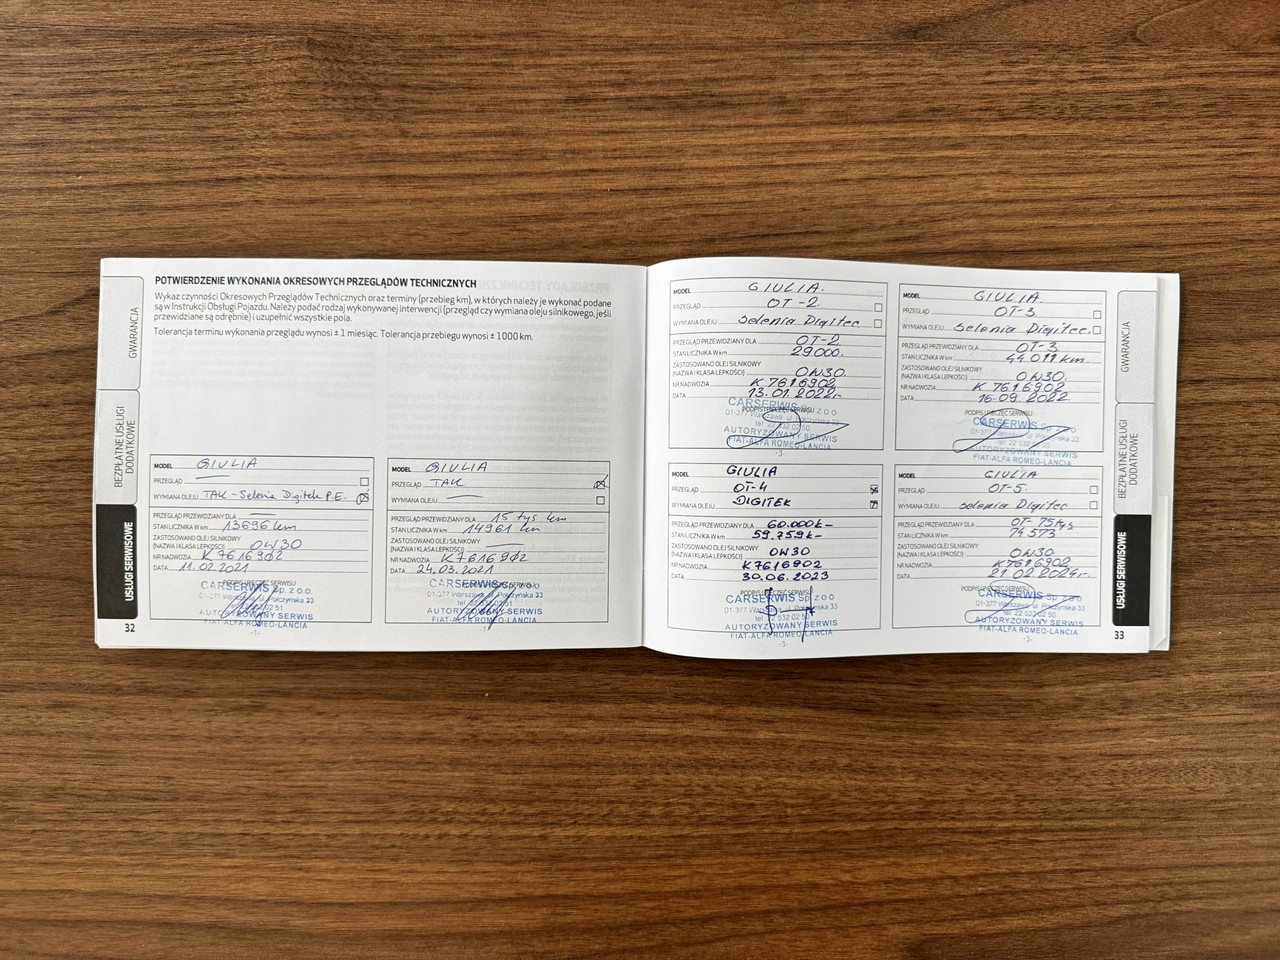 POTWIERDZENIE WYKONANIA OKRESOWYCH PRZEGLĄDÓW TECHNICZNYCH
Wykaz czynności Okresowych Przeglądów Technicznych oraz terminy (przebieg km), w których należy je wykonać podane
są w Instrukcji Obsługi Pojazdu. Należy podać rodzaj wykonywanej interwencji (przegląd czy wymiana oleju silnikowego, jeśli
przewidziane są odrębnie) i uzupełnić wszystkie pola.
Tolerancja terminu wykonania przeglądu wynosi ± 1 miesiąc. Tolerancja przebiegu wynosi ± 1000 km.
GWARANCJA
BEZPŁATNE USŁUGI
DODATKOWE
USŁUGI SERWISOWE
MODEL GIULIA
PRZEGLĄD —
WYMIANA OLEJU TAK - Selenia Digitek P.E.
PRZEGLĄD PRZEWIDZIANY DLA —
STAN LICZNIKA W km 13696 km
ZASTOSOWANO OLEJ SILNIKOWY
(NAZWA I KLASA LEPKOŚCI) 0W30
NR NADWOZIA K7616902
DATA 11.02.2021
PODPIS I PIECZĘĆ SERWISU
CARSERWIS Sp. z o.o.
01-377 Warszawa, ul. Połczyńska 33
AUTORYZOWANY SERWIS
FIAT-ALFA ROMEO-LANCIA
-1-
32
MODEL GIULIA
PRZEGLĄD TAK
WYMIANA OLEJU —
PRZEGLĄD PRZEWIDZIANY DLA 15 tys km
STAN LICZNIKA W km 14961 km
ZASTOSOWANO OLEJ SILNIKOWY
(NAZWA I KLASA LEPKOŚCI) —
NR NADWOZIA K7616902
DATA 24.03.2021
CARSERWIS Sp. z o.o.
01-377 Warszawa, ul. Połczyńska 33
AUTORYZOWANY SERWIS
FIAT-ALFA ROMEO-LANCIA
MODEL GIULIA.
PRZEGLĄD OT-2
WYMIANA OLEJU Selenia Digitec
PRZEGLĄD PRZEWIDZIANY DLA OT-2.
STAN LICZNIKA W km 29000.
ZASTOSOWANO OLEJ SILNIKOWY
(NAZWA I KLASA LEPKOŚCI) 0W30.
NR NADWOZIA K7616902
DATA 13.01.2022r
PODPIS I PIECZĘĆ SERWISU
CARSERWIS Sp. z o.o.
01-377 Warszawa, ul. Połczyńska 33
tel. 22 532 02 50
AUTORYZOWANY SERWIS
FIAT-ALFA ROMEO-LANCIA
-3-
MODEL GIULIA.
PRZEGLĄD OT-3
WYMIANA OLEJU Selenia Digitec.
PRZEGLĄD PRZEWIDZIANY DLA OT-3.
STAN LICZNIKA W km 44.011 km.
ZASTOSOWANO OLEJ SILNIKOWY
(NAZWA I KLASA LEPKOŚCI) 0W30.
NR NADWOZIA K7616902
DATA 16-09 2022
PODPIS I PIECZĘĆ SERWISU
CARSERWIS Sp. z o.o.
01-377 Warszawa, ul. Połczyńska 33
AUTORYZOWANY SERWIS
FIAT-ALFA ROMEO-LANCIA
MODEL GIULIA
PRZEGLĄD OT-4
WYMIANA OLEJU DIGITEK
PRZEGLĄD PRZEWIDZIANY DLA 60.000k-
STAN LICZNIKA W km 59.759k-
ZASTOSOWANO OLEJ SILNIKOWY
(NAZWA I KLASA LEPKOŚCI) 0W30
NR NADWOZIA K7616902
DATA 30.06.2023
PODPIS I PIECZĘĆ SERWISU
CARSERWIS Sp. z o.o.
01-377 Warszawa, ul. Połczyńska 33
tel. 22 532 02 50
AUTORYZOWANY SERWIS
FIAT-ALFA ROMEO-LANCIA
-3-
MODEL GIULIA
PRZEGLĄD OT-5
WYMIANA OLEJU Selenia Digitec
PRZEGLĄD PRZEWIDZIANY DLA OT-75tys
STAN LICZNIKA W km 74573
ZASTOSOWANO OLEJ SILNIKOWY
(NAZWA I KLASA LEPKOŚCI) 0W30
NR NADWOZIA K7616902
DATA 21.02.2024r.
CARSERWIS Sp. z o.o.
01-377 Warszawa, ul. Połczyńska 33
AUTORYZOWANY SERWIS
FIAT-ALFA ROMEO-LANCIA
-3-
GWARANCJA
BEZPŁATNE USŁUGI
DODATKOWE
USŁUGI SERWISOWE
33